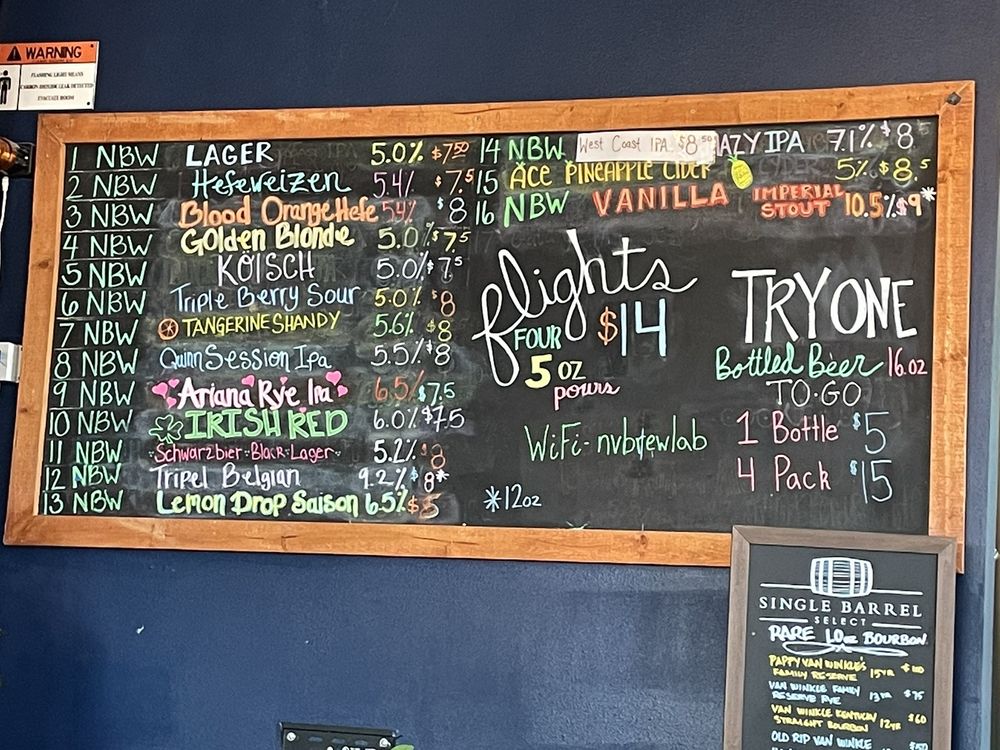 WARNING
FLASHING LIGHT MEANS
CARBON DIOXIDE LEAK DETECTED
EVACUATE ROOM
1 NBW LAGER 5.0% $7.50
2 NBW Hefeweizen 5.4% $7.5
3 NBW Blood Orange Hefe 5.4% $8
4 NBW Golden Blonde 5.0% $7.5
5 NBW KÖLSCH 5.0% $7.5
6 NBW Triple Berry Sour 5.0% $8
7 NBW TANGERINE SHANDY 5.6% $8
8 NBW Quinn Session Ipa 5.5% $8
9 NBW Ariana Rye Ipa 6.5% $7.5
10 NBW IRISH RED 6.0% $7.5
11 NBW Schwarzbier · Black · Lager 5.2% $8
12 NBW Tripel Belgian 9.2% $8*
13 NBW Lemon Drop Saison 6.5% $8
14 NBW West Coast IPA $8.50 HAZY IPA 7.1% $8
15 Ace PINEAPPLE CIDER 5% $8.5
16 NBW VANILLA IMPERIAL STOUT 10.5% $9*
17
flights
FOUR $14
5 OZ
pours
WiFi - nvbrewlab
*12oz
TRY ONE
Bottled Beer 16.oz
TO·GO
1 Bottle $5
4 Pack $15
SINGLE BARREL
SELECT
RARE 1.0oz BOURBON
PAPPY VAN WINKLE'S
FAMILY RESERVE 15YR
VAN WINKLE FAMILY
RESERVE RYE 13YR $75
VAN WINKLE KENTUCKY
STRAIGHT BOURBON 12YR $60
OLD RIP VAN WINKLE